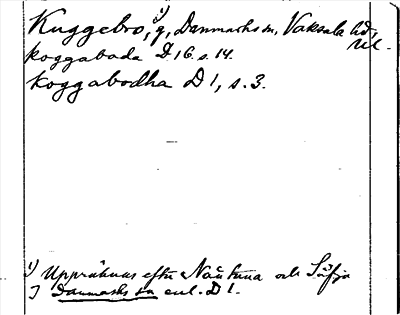 Kuggebro,¹) g, Danmarks sn, Vaksala hd, Ul.
koggaboda D 16 s. 14.
koggabodha D 1, s. 3.
¹) Uppräknas efter Nåntuna och Säfja
) Danmarks sn enl. D 1.